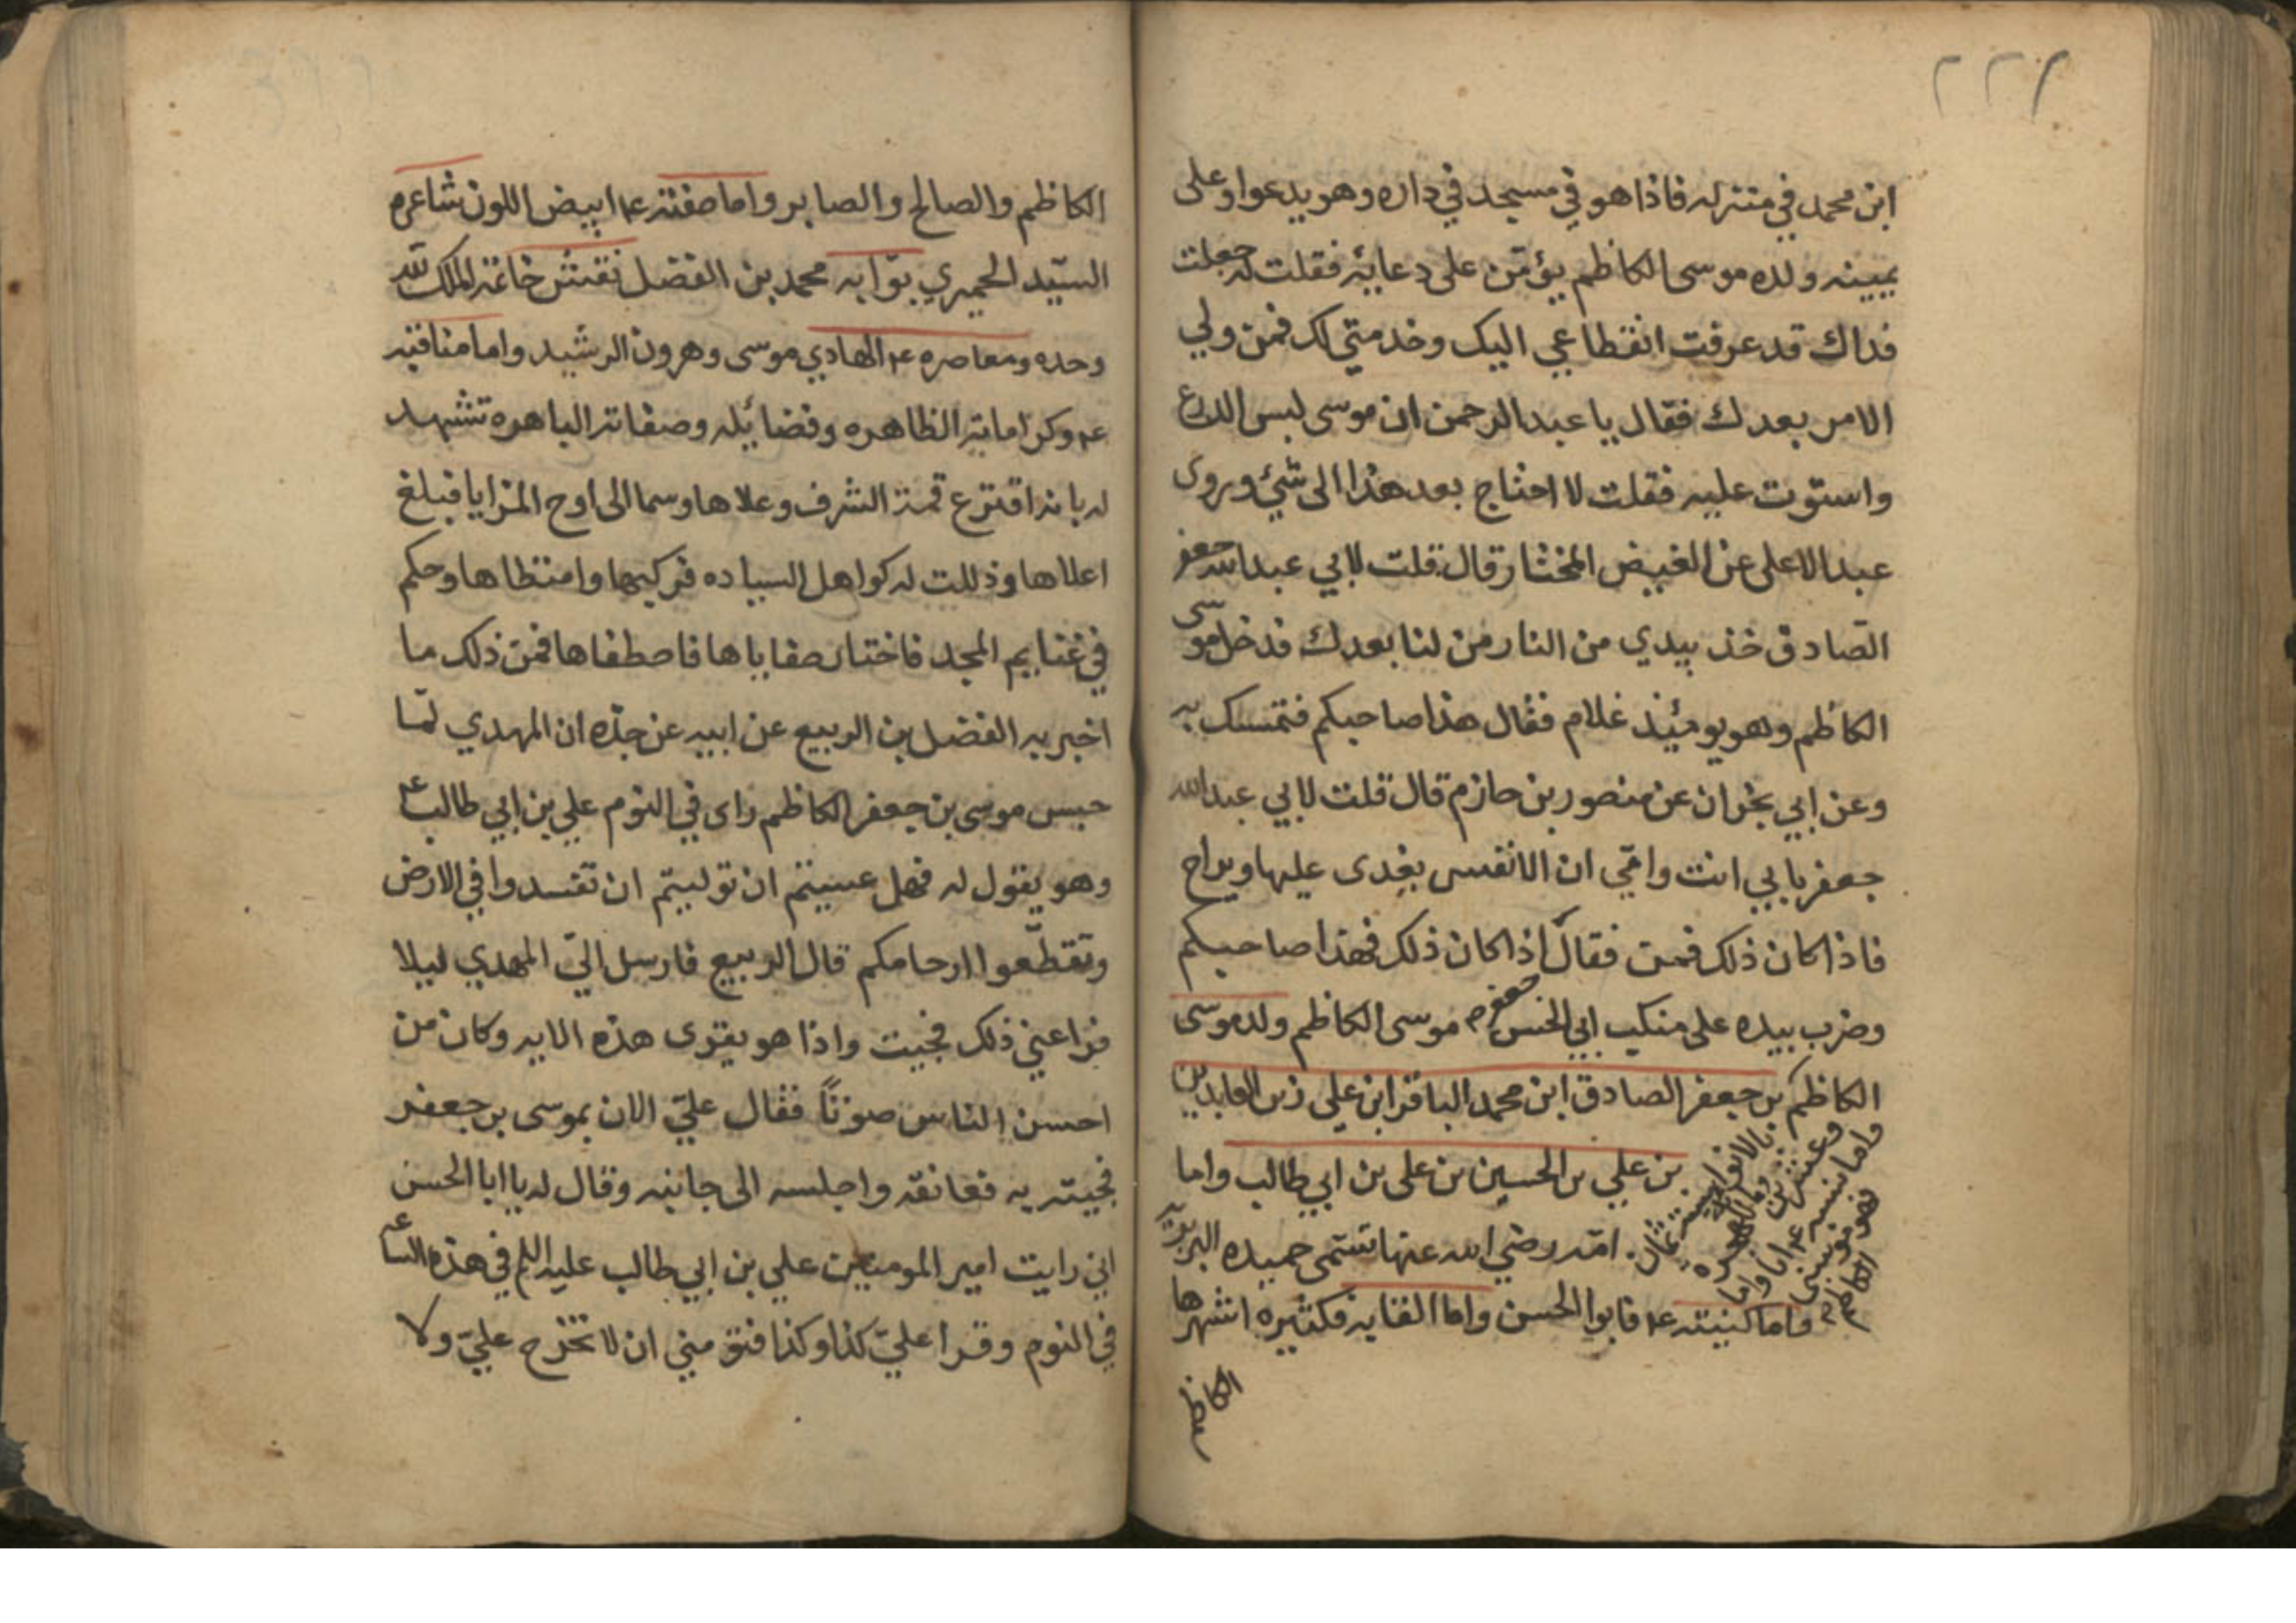 ٢٢٢
ابن محمد في منزله فاذا هو في مسجد في داره وهو يدعوا وعلى
يمينه ولده موسى الكاظم يؤمّن على دعايئه فقلت له جعلت
فداك قد عرفت انقطاعي اليك وخدمتي لك فمن ولي
الامر بعدك فقال يا عبد الرحمن ان موسى لبس الدرع
واستوت عليه فقلت لا احتاج بعد هذا الى شئ وروى
عبد الاعلى عن الفيض المختار قال قلت لابي عبد الله جعفر
الصّادق خذ بيدي من النار من لنا بعدك فدخل موسى
الكاظم وهو يومئيذ غلام فقال هذا صاحبكم فتمسك به
وعن ابي نجران عن منصور بن حازم قال قلت لابي عبد الله
جعفر بابي انت وامّي ان الانفس يغدى عليها ويراح
فاذا كان ذلك فمن فقال اذا كان ذلك فهذا صاحبكم
وضرب بيده على منكب ابي الحسن موسى الكاظم ولد موسى
الكاظم بن جعفر الصادق ابن محمد الباقر ابن علي زين العابدين
بن علي بن الحسين بن على بن ابي طالب واما
امّه رضي الله عنها تسّمى حميده البربريه
واما كنيته ع۴ فابوا الحسن واما القابه فكثيره اشهرها
الكاظم
الكاظم والصالح والصابر واما صفته ع۴ ابيض اللون شاعره
السيّد الحميري بوّابه محمد بن الفضل نقش خاتمه الملك لله
وحده ومعاصره ع۴ الهادي موسى وهرون الرشيد واما مناقبه
ع۴ وكراماته الظاهره وفضائيله وصفاته الباهره تشهد
له بانه اقترع قمة الشرف وعلاها وسما الى اوج المزايا فبلغ
اعلاها وذللت له كواهل السياده فركبها وامتطاها وحكم
في غنايم المجد فاختار صفاياها فاصطفاها فمن ذلك ما
اخبر به الفضل بن الربيع عن ابيه عن جدّه ان المهدي لمّا
حبس موسى بن جعفر الكاظم راى في النوم علي بن ابي طالب ع۴
وهو يقول له فهل عسيتم ان توليتم ان تفسدوا في الارض
وتقطّعوا ارحامكم قال الربيع فارسل اليّ المهدي ليلا
فراعني ذلك فجيت واذا هو يقرى هذه الايه وكان من
احسن الناس صوتاً فقال عليّ الان بموسى بن جعفر
فجيته به فعانقه واجلسه الى جانبه وقال له يا ابا الحسن
اني رايت امير المومنين علي بن ابي طالب عليه السلم في هذه الساعه
في النوم وقرا عليّ كذا وكذا فتق مني ان لا تخرج عليّ ولا